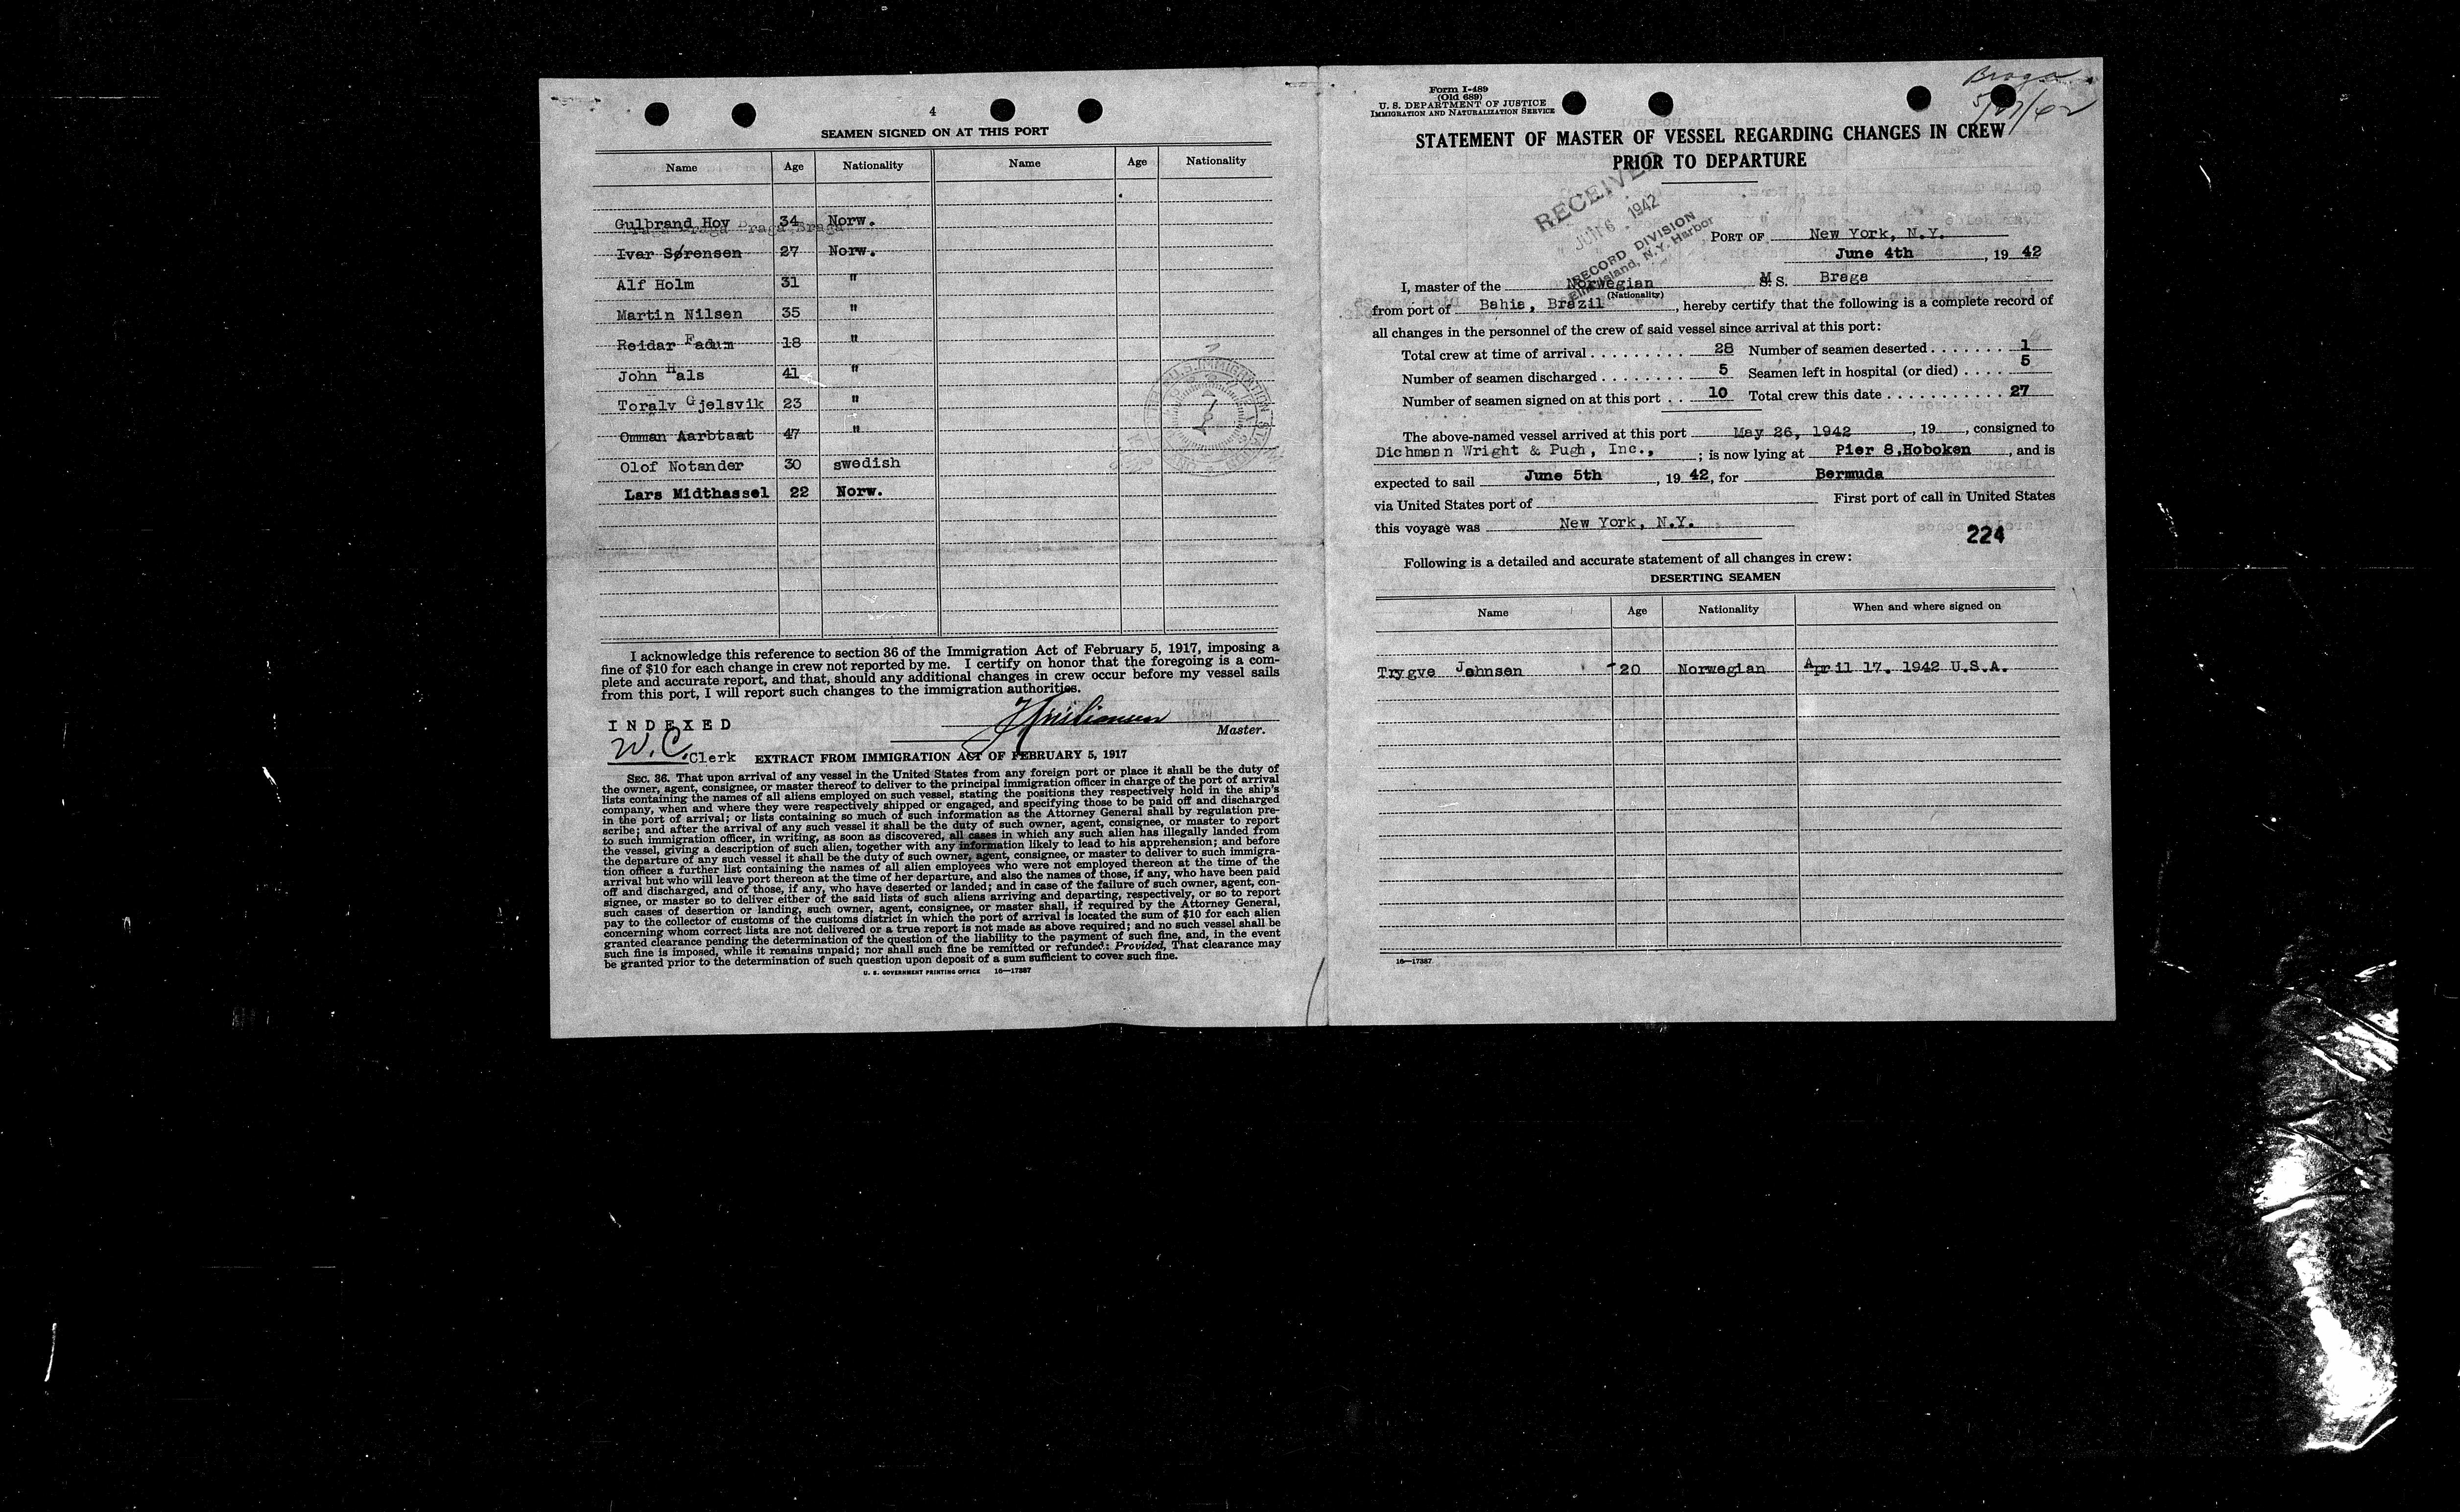 4
SEAMEN SIGNED ON AT THIS PORT
Name Age Nationality Name Age Nationality
Gulbrand Hoy 34 Norw.
Braga Braga
Ivar Sørensen 27 Norw.
Alf Holm 31 "
Martin Nilsen 35 "
Reidar Fadum 18 "
John Hals 41 "
Toralv Gjelsvik 23 "
Omman Aarbtaat 47 "
Olof Notander 30 swedish
Lars Midthassel 22 Norw.
I acknowledge this reference to section 36 of the Immigration Act of February 5, 1917, imposing a
fine of $10 for each change in crew not reported by me. I certify on honor that the foregoing is a com-
plete and accurate report, and that, should any additional changes in crew occur before my vessel sails
from this port, I will report such changes to the immigration authorities.
INDEXED
Master.
W.C. Clerk EXTRACT FROM IMMIGRATION ACT OF FEBRUARY 5, 1917
SEC. 36. That upon arrival of any vessel in the United States from any foreign port or place it shall be the duty of
the owner, agent, consignee, or master thereof to deliver to the principal immigration officer in charge of the port of arrival
lists containing the names of all aliens employed on such vessel, stating the positions they respectively hold in the ship's
company, when and where they were respectively shipped or engaged, and specifying those to be paid off and discharged
in the port of arrival; or lists containing so much of such information as the Attorney General shall by regulation pre-
scribe; and after the arrival of any such vessel it shall be the duty of such owner, agent, consignee, or master to report
to such immigration officer, in writing, as soon as discovered, all cases in which any such alien has illegally landed from
the vessel, giving a description of such alien, together with any information likely to lead to his apprehension; and before
the departure of any such vessel it shall be the duty of such owner, agent, consignee, or master to deliver to such immigra-
tion officer a further list containing the names of all alien employees who were not employed thereon at the time of the
arrival but who will leave port thereon at the time of her departure, and also the names of those, if any, who have been paid
off and discharged, and of those, if any, who have deserted or landed; and in case of the failure of such owner, agent, con-
signee, or master so to deliver either of the said lists of such aliens arriving and departing, respectively, or so to report
such cases of desertion or landing, such owner, agent, consignee, or master shall, if required by the Attorney General,
pay to the collector of customs of the customs district in which the port of arrival is located the sum of $10 for each alien
concerning whom correct lists are not delivered or a true report is not made as above required; and no such vessel shall be
granted clearance pending the determination of the question of the liability to the payment of such fine, and, in the event
such fine is imposed, while it remains unpaid; nor shall such fine be remitted or refunded: Provided, That clearance may
be granted prior to the determination of such question upon deposit of a sum sufficient to cover such fine.
U. S. GOVERNMENT PRINTING OFFICE 16—17387
Braga
5/27/42
Form I-489
(Old 689)
U. S. DEPARTMENT OF JUSTICE
IMMIGRATION AND NATURALIZATION SERVICE
STATEMENT OF MASTER OF VESSEL REGARDING CHANGES IN CREW
PRIOR TO DEPARTURE
RECEIVED
JUN 6 1942
RECORD DIVISION
Ellis Island, N.Y. Harbor
PORT OF New York, N.Y.
June 4th, 1942
I, master of the Norwegian M S. Braga
(Nationality)
from port of Bahia, Brazil, hereby certify that the following is a complete record of
all changes in the personnel of the crew of said vessel since arrival at this port:
Total crew at time of arrival . . . . . . . . . 28 Number of seamen deserted . . . . . . . 1
Number of seamen discharged . . . . . . . . 5 Seamen left in hospital (or died) . . . . 5
Number of seamen signed on at this port . . 10 Total crew this date . . . . . . . . . . . 27
The above-named vessel arrived at this port May 26, 1942, 19, consigned to
Dichmann Wright & Pugh, Inc., ; is now lying at Pier 8, Hoboken, and is
expected to sail June 5th, 1942, for Bermuda
via United States port of " First port of call in United States
this voyage was New York, N.Y.
224
Following is a detailed and accurate statement of all changes in crew:
DESERTING SEAMEN
Name Age Nationality When and where signed on
Trygve Johnsen 20 Norwegian April 17. 1942 U.S.A.
16—17387